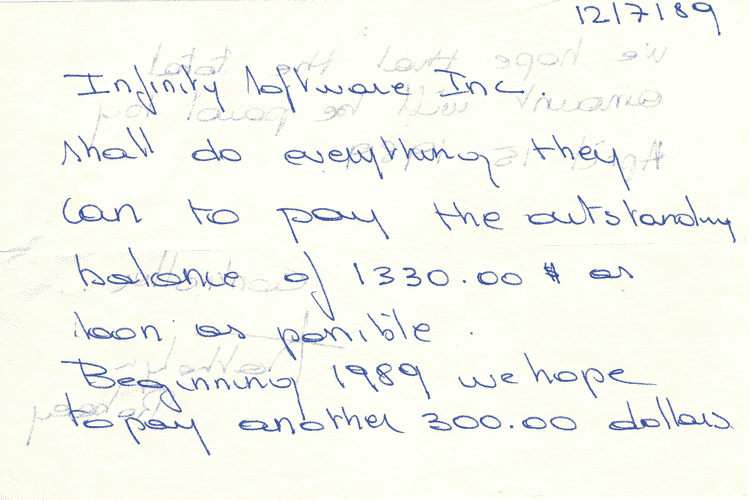 12/7/89
Infinity Software Inc.
shall do everything they
can to pay the outstanding
balance of 1330.00 $ as
soon as possible.
Beginning 1989 we hope
to pay another 300.00 dollars